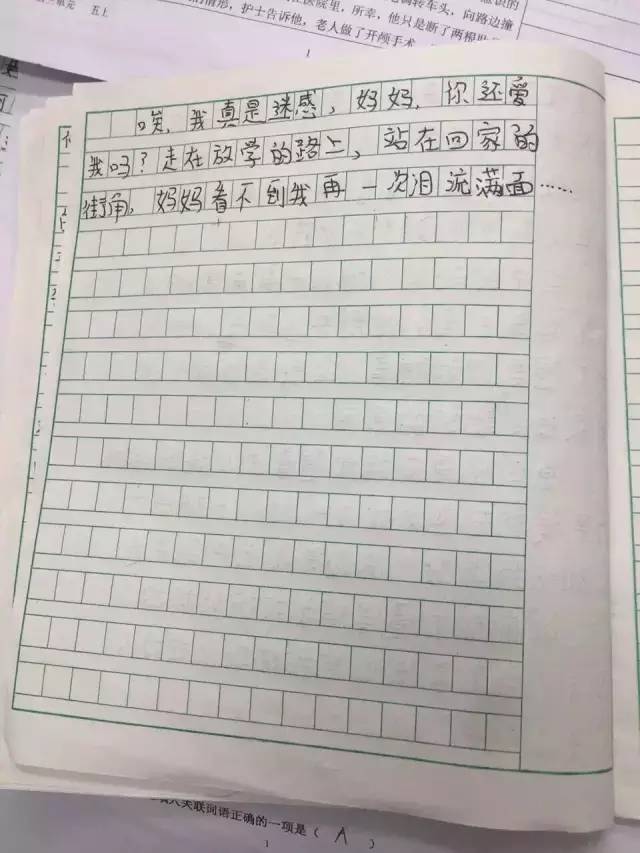 五上
护士告诉他，老人做了开颅手术
医院里，所幸，他只是断了两根
转车头，向路边撞
1
唉，我真是迷惑，妈妈，你还爱
我吗？走在放学的路上，站在回家的
街角，妈妈看不到我再一次泪流满面……
关联词语正确的一项是（ A ）
1